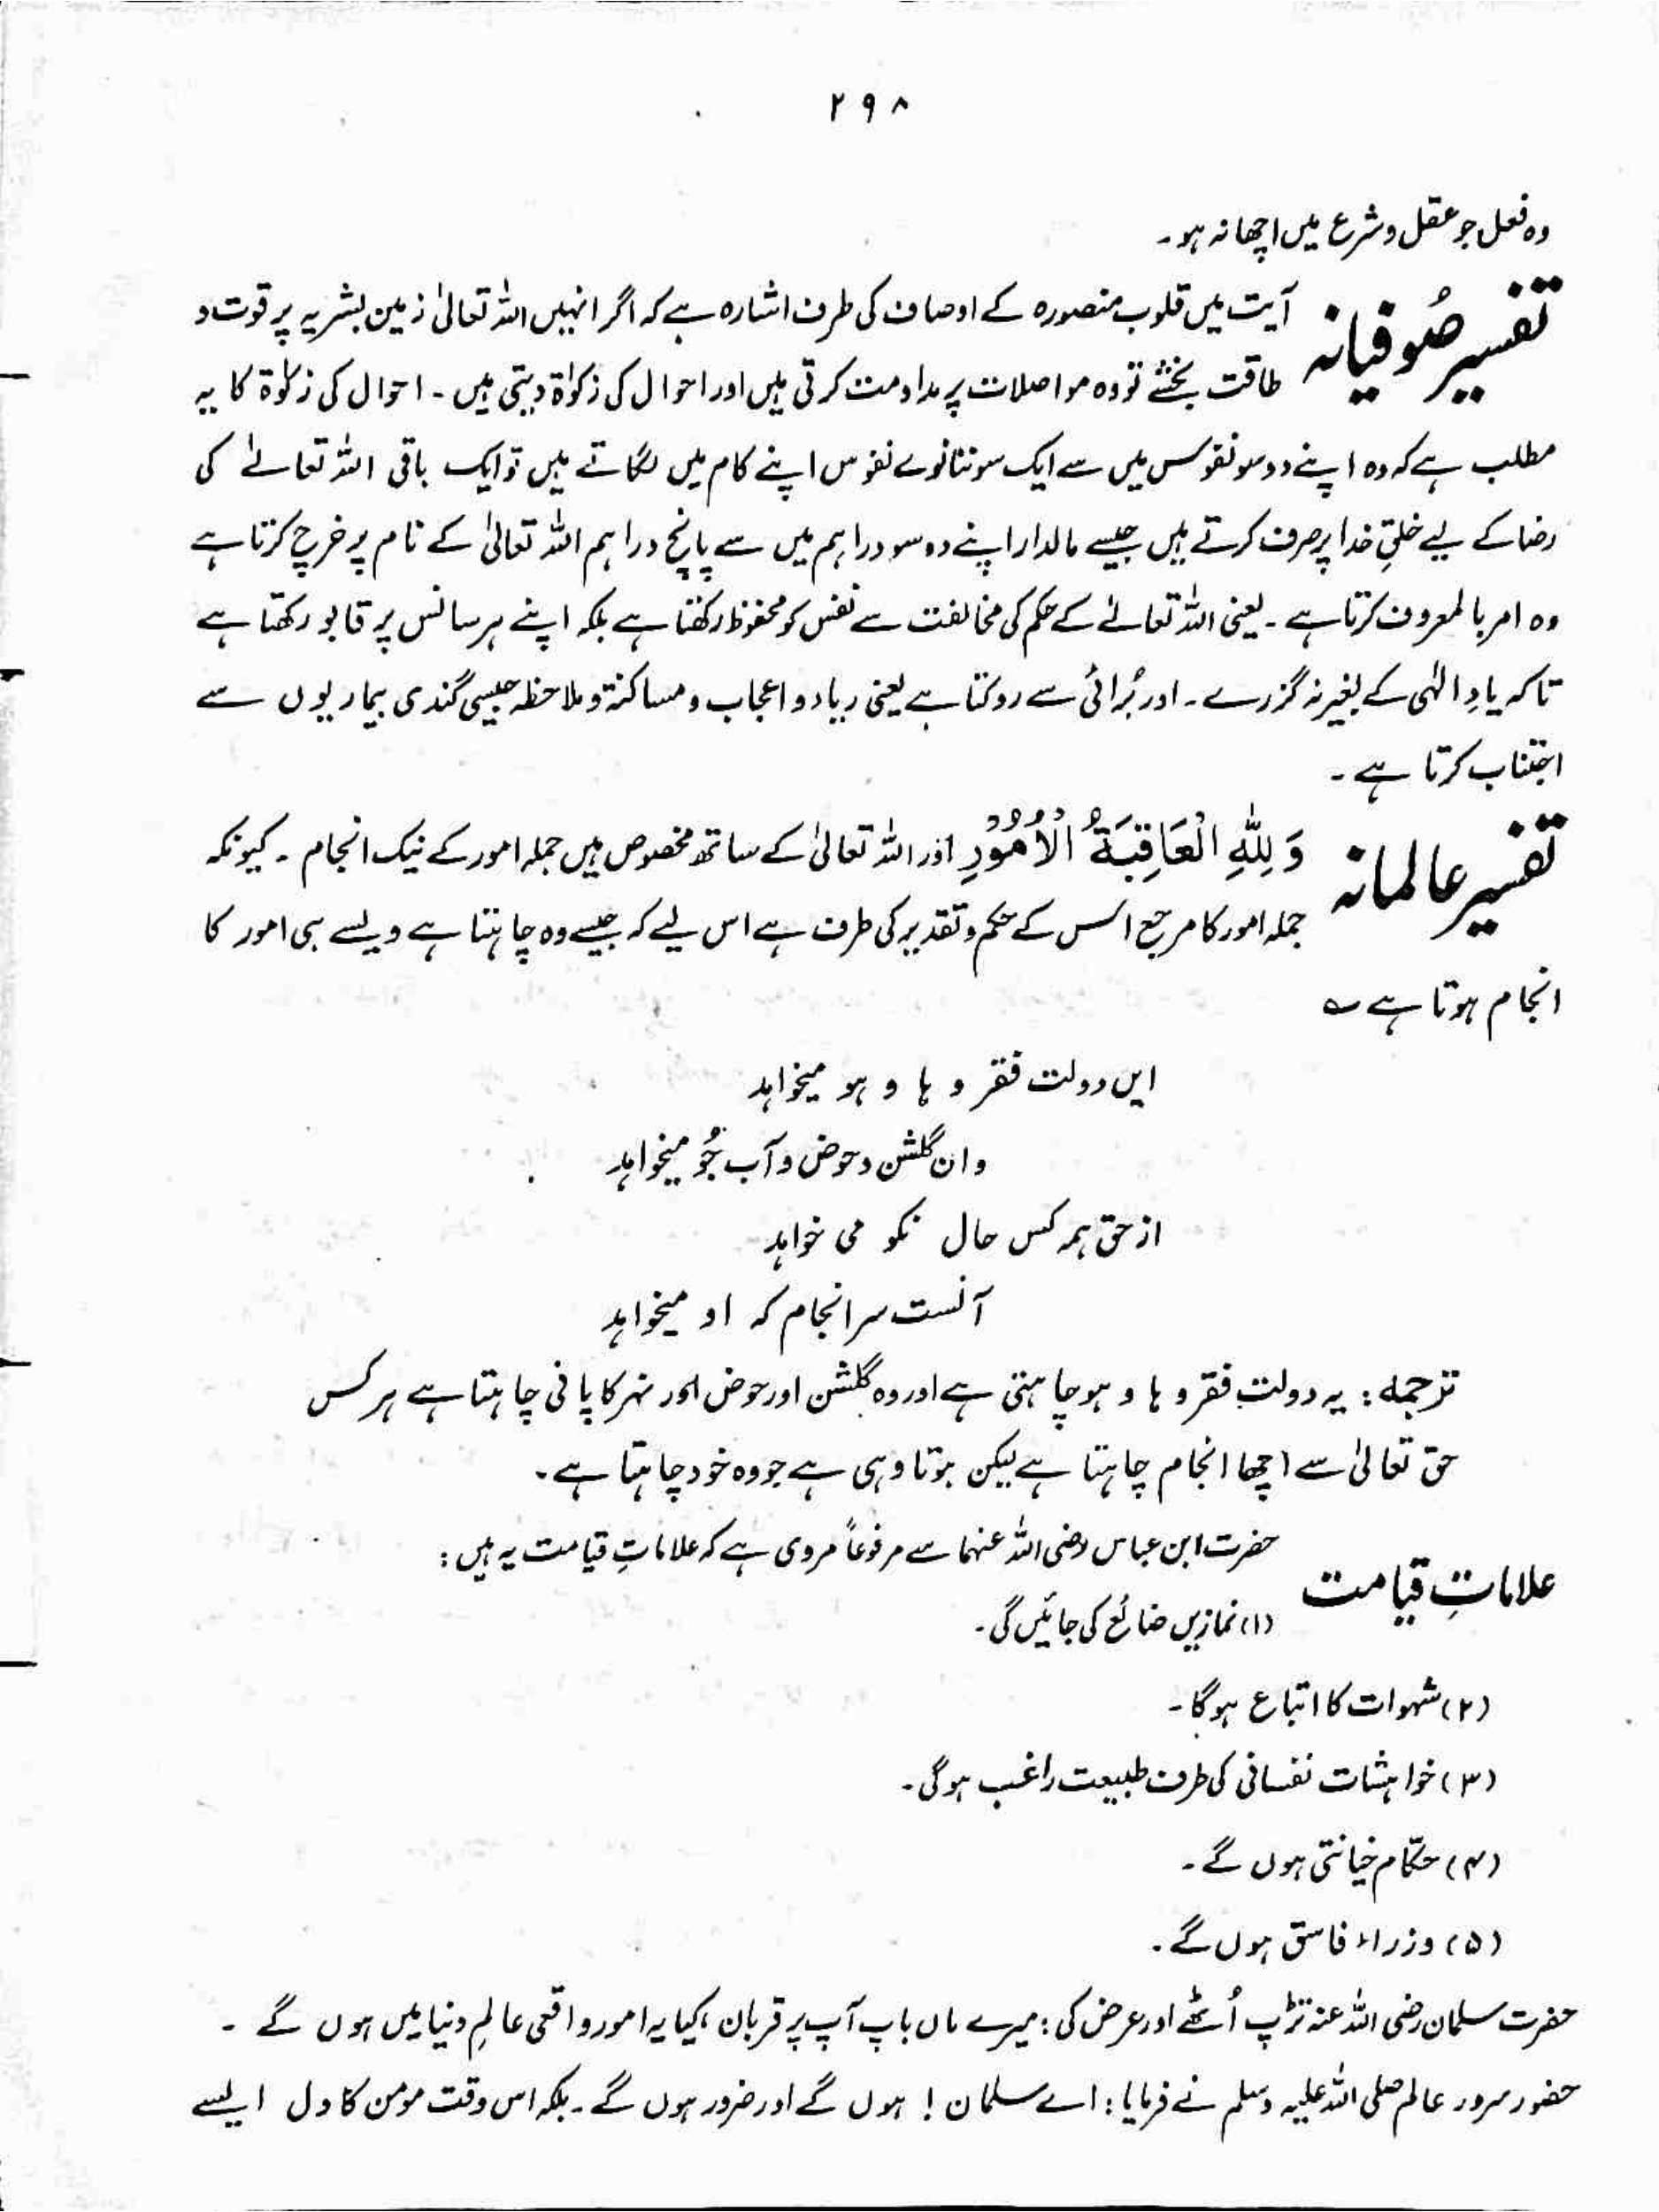 ۲۹۸
وہ فعل جو عقل و شرع میں اچھا نہ ہو۔
تفسیر صُوفیانہ
آیت میں قلوب منصورہ کے اوصاف کی طرف اشارہ ہے کہ اگر انہیں اللہ تعالیٰ زمین بشریہ پر قوت و
طاقت بخشے تو وہ مواصلات پر مداومت کرتی ہیں اور احوال کی زکوٰۃ دیتی ہیں۔ احوال کی زکوٰۃ کا یہ
مطلب ہے کہ وہ اپنے دو سو نفوس میں سے ایک سو ننانوے نفوس اپنے کام میں لگاتے ہیں تو ایک باقی اللہ تعالےٰ کی
رضا کے لیے خلقِ خدا پر صرف کرتے ہیں جیسے مالدار اپنے دو سو دراہم میں سے پانچ دراہم اللہ تعالیٰ کے نام پر خرچ کرتا ہے
وہ امر بالمعروف کرتا ہے۔ یعنی اللہ تعالےٰ کے حکم کی مخالفت سے نفس کو محفوظ رکھتا ہے بلکہ اپنے ہر سانس پر قابو رکھتا ہے
تاکہ یادِ الٰہی کے بغیر نہ گزرے۔ اور بُرائی سے روکتا ہے یعنی ریاء و اعجاب و مساکنۃ و ملاحظہ جیسی گندی بیماریوں سے
اجتناب کرتا ہے۔
تفسیر عالمانہ
وَ لِلّٰهِ الْعَاقِبَةُ الْاُمُوْرِ اور اللہ تعالیٰ کے ساتھ مخصوص ہیں جملہ امور کے نیک انجام۔ کیونکہ
جملہ امور کا مرجع اس کے حکم و تقدیر کی طرف ہے اس لیے کہ جیسے وہ چاہتا ہے ویسے ہی امور کا
انجام ہوتا ہے ؎
ایں دولت فقر و ہا و ہو میخواہد
وان گلشن و حوض و آب جُو میخواہد
از حق ہمہ کس حال نکو می خواہد
آنست سرانجام کہ او میخواہد
ترجمہ: یہ دولت فقر و ہا و ہو چاہتی ہے اور وہ گلشن اور حوض اور نہر کا پانی چاہتا ہے ہر کس
حق تعالیٰ سے اچھا انجام چاہتا ہے لیکن ہوتا وہی ہے جو وہ خود چاہتا ہے۔
علاماتِ قیامت
حضرت ابن عباس رضی اللہ عنہما سے مرفوعاً مروی ہے کہ علاماتِ قیامت یہ ہیں:
(۱) نمازیں ضائع کی جائیں گی۔
(۲) شہوات کا اتباع ہوگا۔
(۳) خواہشات نفسانی کی طرف طبیعت راغب ہوگی۔
(۴) حکّام خیانتی ہوں گے۔
(۵) وزراء فاسق ہوں گے۔
حضرت سلمان رضی اللہ عنہ تڑپ اُٹھے اور عرض کی: میرے ماں باپ آپ پر قربان، کیا یہ امور واقعی عالمِ دنیا میں ہوں گے۔
حضور سرور عالم صلی اللہ علیہ وسلم نے فرمایا: اے سلمان! ہوں گے اور ضرور ہوں گے۔ بلکہ اس وقت مومن کا دل ایسے